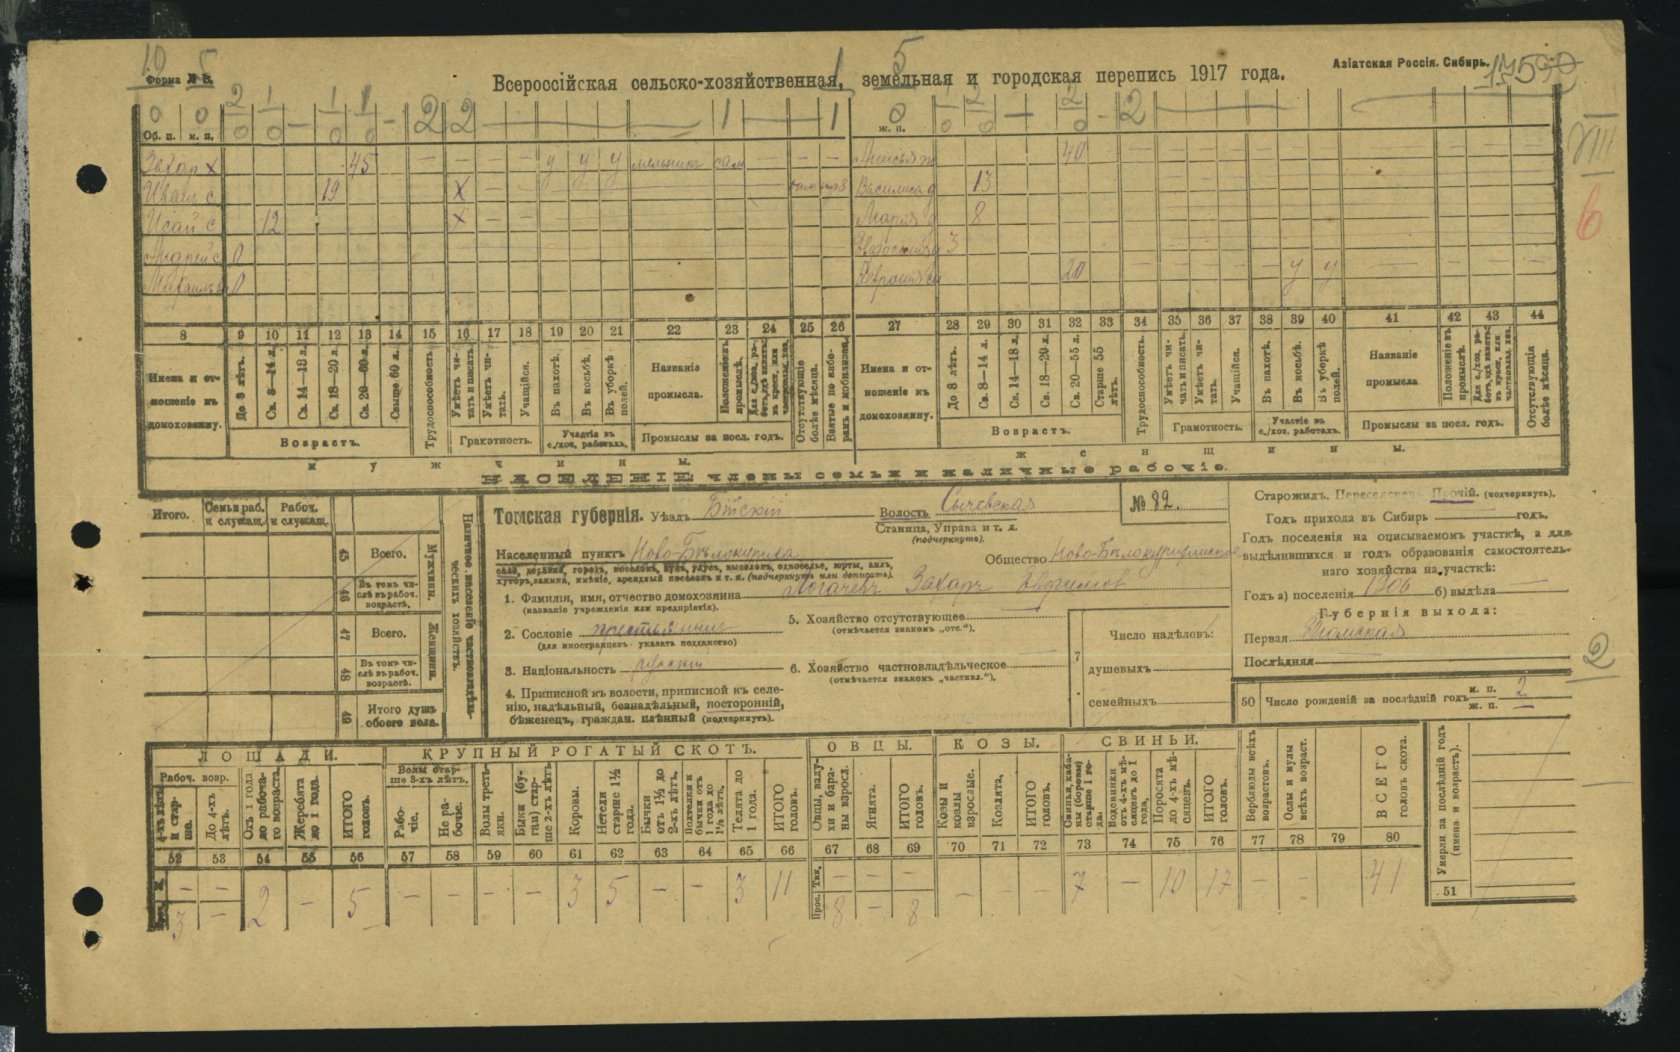 10 5
Форма № 3.
Всероссійская сельско-хозяйственная, земельная и городская перепись 1917 года.
1 5
Азіатская Россія. Сибирь.
Об. п. м. п.
ж. п.
Захар х 45 — — — — у у у мельникъ сам — — —
Иван с 19 х — —
Исай с 12 х — —
Андрей с 0
Михаилъ 0
40
Василиса д 13
Мария д 8
3
20 у у
VIII
6
2
8 9 10 11 12 13 14 15 16 17 18 19 20 21 22 23 24 25 26 27 28 29 30 31 32 33 34 35 36 37 38 39 40 41 42 43 44
Имена и отношеніе къ домохозяину.
До 8 лѣтъ.
Св. 8—14 л.
Св. 14—18 л.
Св. 18—20 л.
Св. 20—60 л.
Свыше 60 л.
Возрастъ.
Трудоспособность.
Умѣетъ читать и писать.
Умѣетъ читать.
Учащійся.
Грамотность.
Въ пахотѣ.
Въ косьбѣ.
Въ уборкѣ полей.
Участіе въ с./хоз. работахъ.
Названіе промысла.
Положеніе въ промыслѣ.
Промыслы за посл. годъ.
Отсутствующіе болѣе мѣсяца.
Взятые по наборамъ и мобилизац.
Имена и отношеніе къ домохозяину.
До 8 лѣтъ.
Св. 8—14 л.
Св. 14—18 л.
Св. 18—20 л.
Св. 20—55 л.
Старше 55 лѣтъ.
Возрастъ.
Трудоспособность.
Умѣетъ читать и писать.
Умѣетъ читать.
Учащійся.
Грамотность.
Въ пахотѣ.
Въ косьбѣ.
Въ уборкѣ полей.
Участіе въ с./хоз. работахъ.
Названіе промысла
Положеніе въ промыслѣ.
Промыслы за посл. годъ.
Отсутствующія болѣе мѣсяца.
мужчины.
женщины.
НАСЕЛЕНІЕ члены семьи и наличные рабочіе.
Итого. Семьи раб. и служащ. Рабоч. и служащ.
45 Всего.
46 Въ томъ числѣ въ рабоч. возрастѣ.
Мужчины.
47 Всего.
48 Въ томъ числѣ въ рабоч. возрастѣ.
Женщины.
49 Итого душъ обоего пола.
Наличное населеніе частновладѣльческихъ хозяйствъ.
Томская губернія. Уѣздъ Бійскій Волость Сычевская
Станица, Управа и т. д.
(подчеркнуть).
№ 82.
Населенный пунктъ Ново-Бѣлокуриха Общество Ново-Бѣлокурихинское
село, деревня, городъ, поселокъ, аулъ, улусъ, выселокъ, односелье, юрты, аилъ,
хуторъ, заимка, имѣніе, арендный поселокъ и т. п. (подчеркнуть или дописать).
1. Фамилія, имя, отчество домохозяина Логачевъ Захаръ Ефимов
(названіе учрежденія или предпріятія).
2. Сословіе крестьянинъ
(для иностранцевъ указать подданство)
3. Національность русскій
4. Приписной къ волости, приписной къ селенію, надѣльный, безнадѣльный, посторонній,
бѣженецъ, граждан. плѣнный (подчеркнуть).
5. Хозяйство отсутствующее
(отмѣчается знакомъ „отс.“).
6. Хозяйство частновладѣльческое
(отмѣчается знакомъ „частвл.“).
7
Число надѣловъ:
душевыхъ
семейныхъ
Старожилъ. Переселенецъ. Прочій. (подчеркнуть).
Годъ прихода въ Сибирь годъ.
Годъ поселенія на описываемомъ участкѣ, а для
выдѣлившихся и годъ образованія самостоятельнаго хозяйства на участкѣ:
Годъ а) поселенія 1906 б) выдѣла
Губернія выхода:
Первая Томская
Послѣдняя
50 Число рожденій за послѣдній годъ м. п. 2
ж. п.
ЛОШАДИ.
Рабоч. возр.
4-хъ лѣтъ и старше.
До 4-хъ лѣтъ.
Отъ 1 года до рабочаго возраста.
Жеребята до 1 года.
ИТОГО головъ.
КРУПНЫЙ РОГАТЫЙ СКОТЪ.
Волы старше 3-хъ лѣтъ.
Рабочіе.
Не рабочіе.
Волы третьяки.
Быки (бугаи) старше 2-хъ лѣтъ.
Коровы.
Нетели старше 1½ года.
Бычки отъ 1½ до 2-хъ лѣтъ.
Полтелки и бычки отъ 1 года до 1½ лѣтъ.
Телята до 1 года.
ИТОГО головъ.
ОВЦЫ.
Овцы, валухи и бараны взросл.
Ягнята.
ИТОГО головъ.
КОЗЫ.
Козы и козлы взрослые.
Козлята.
ИТОГО головъ.
СВИНЬИ.
Свиньи, кабаны (боровы) старше 1 года.
Подсвинки отъ 4-хъ мѣсяцевъ до 1 года.
Поросята до 4-хъ мѣсяцевъ.
ИТОГО головъ.
Верблюды всѣхъ возрастовъ.
Ослы и мулы всѣхъ возраст.
ВСЕГО головъ скота.
Умерли за послѣдній годъ (имена и возрастъ).
51
52 53 54 55 56 57 58 59 60 61 62 63 64 65 66 67 68 69 70 71 72 73 74 75 76 77 78 79 80
Тнк. — — —
Прос. 8 — 8
3 — 2 — 5 — — — — 3 5 — — 3 11 — — 7 — 10 17 — — 41